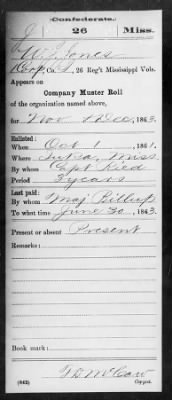 Confederate.
J 26 Miss.
W. J. Jones
Corp, Co. , 26 Reg't Mississippi Vols.
Appears on
Company Muster Roll
of the organization named above,
for Nov & Dec, 1863.
Enlisted:
When Oct 1, 1861.
Where Iuka, Miss.
By whom Capt Reed
Period 3 years
Last paid:
By whom Maj. Billups
To what time June 30, 1863.
Present or absent Present
Remarks:
Book mark:
J D McCaw
(642) Copyist.